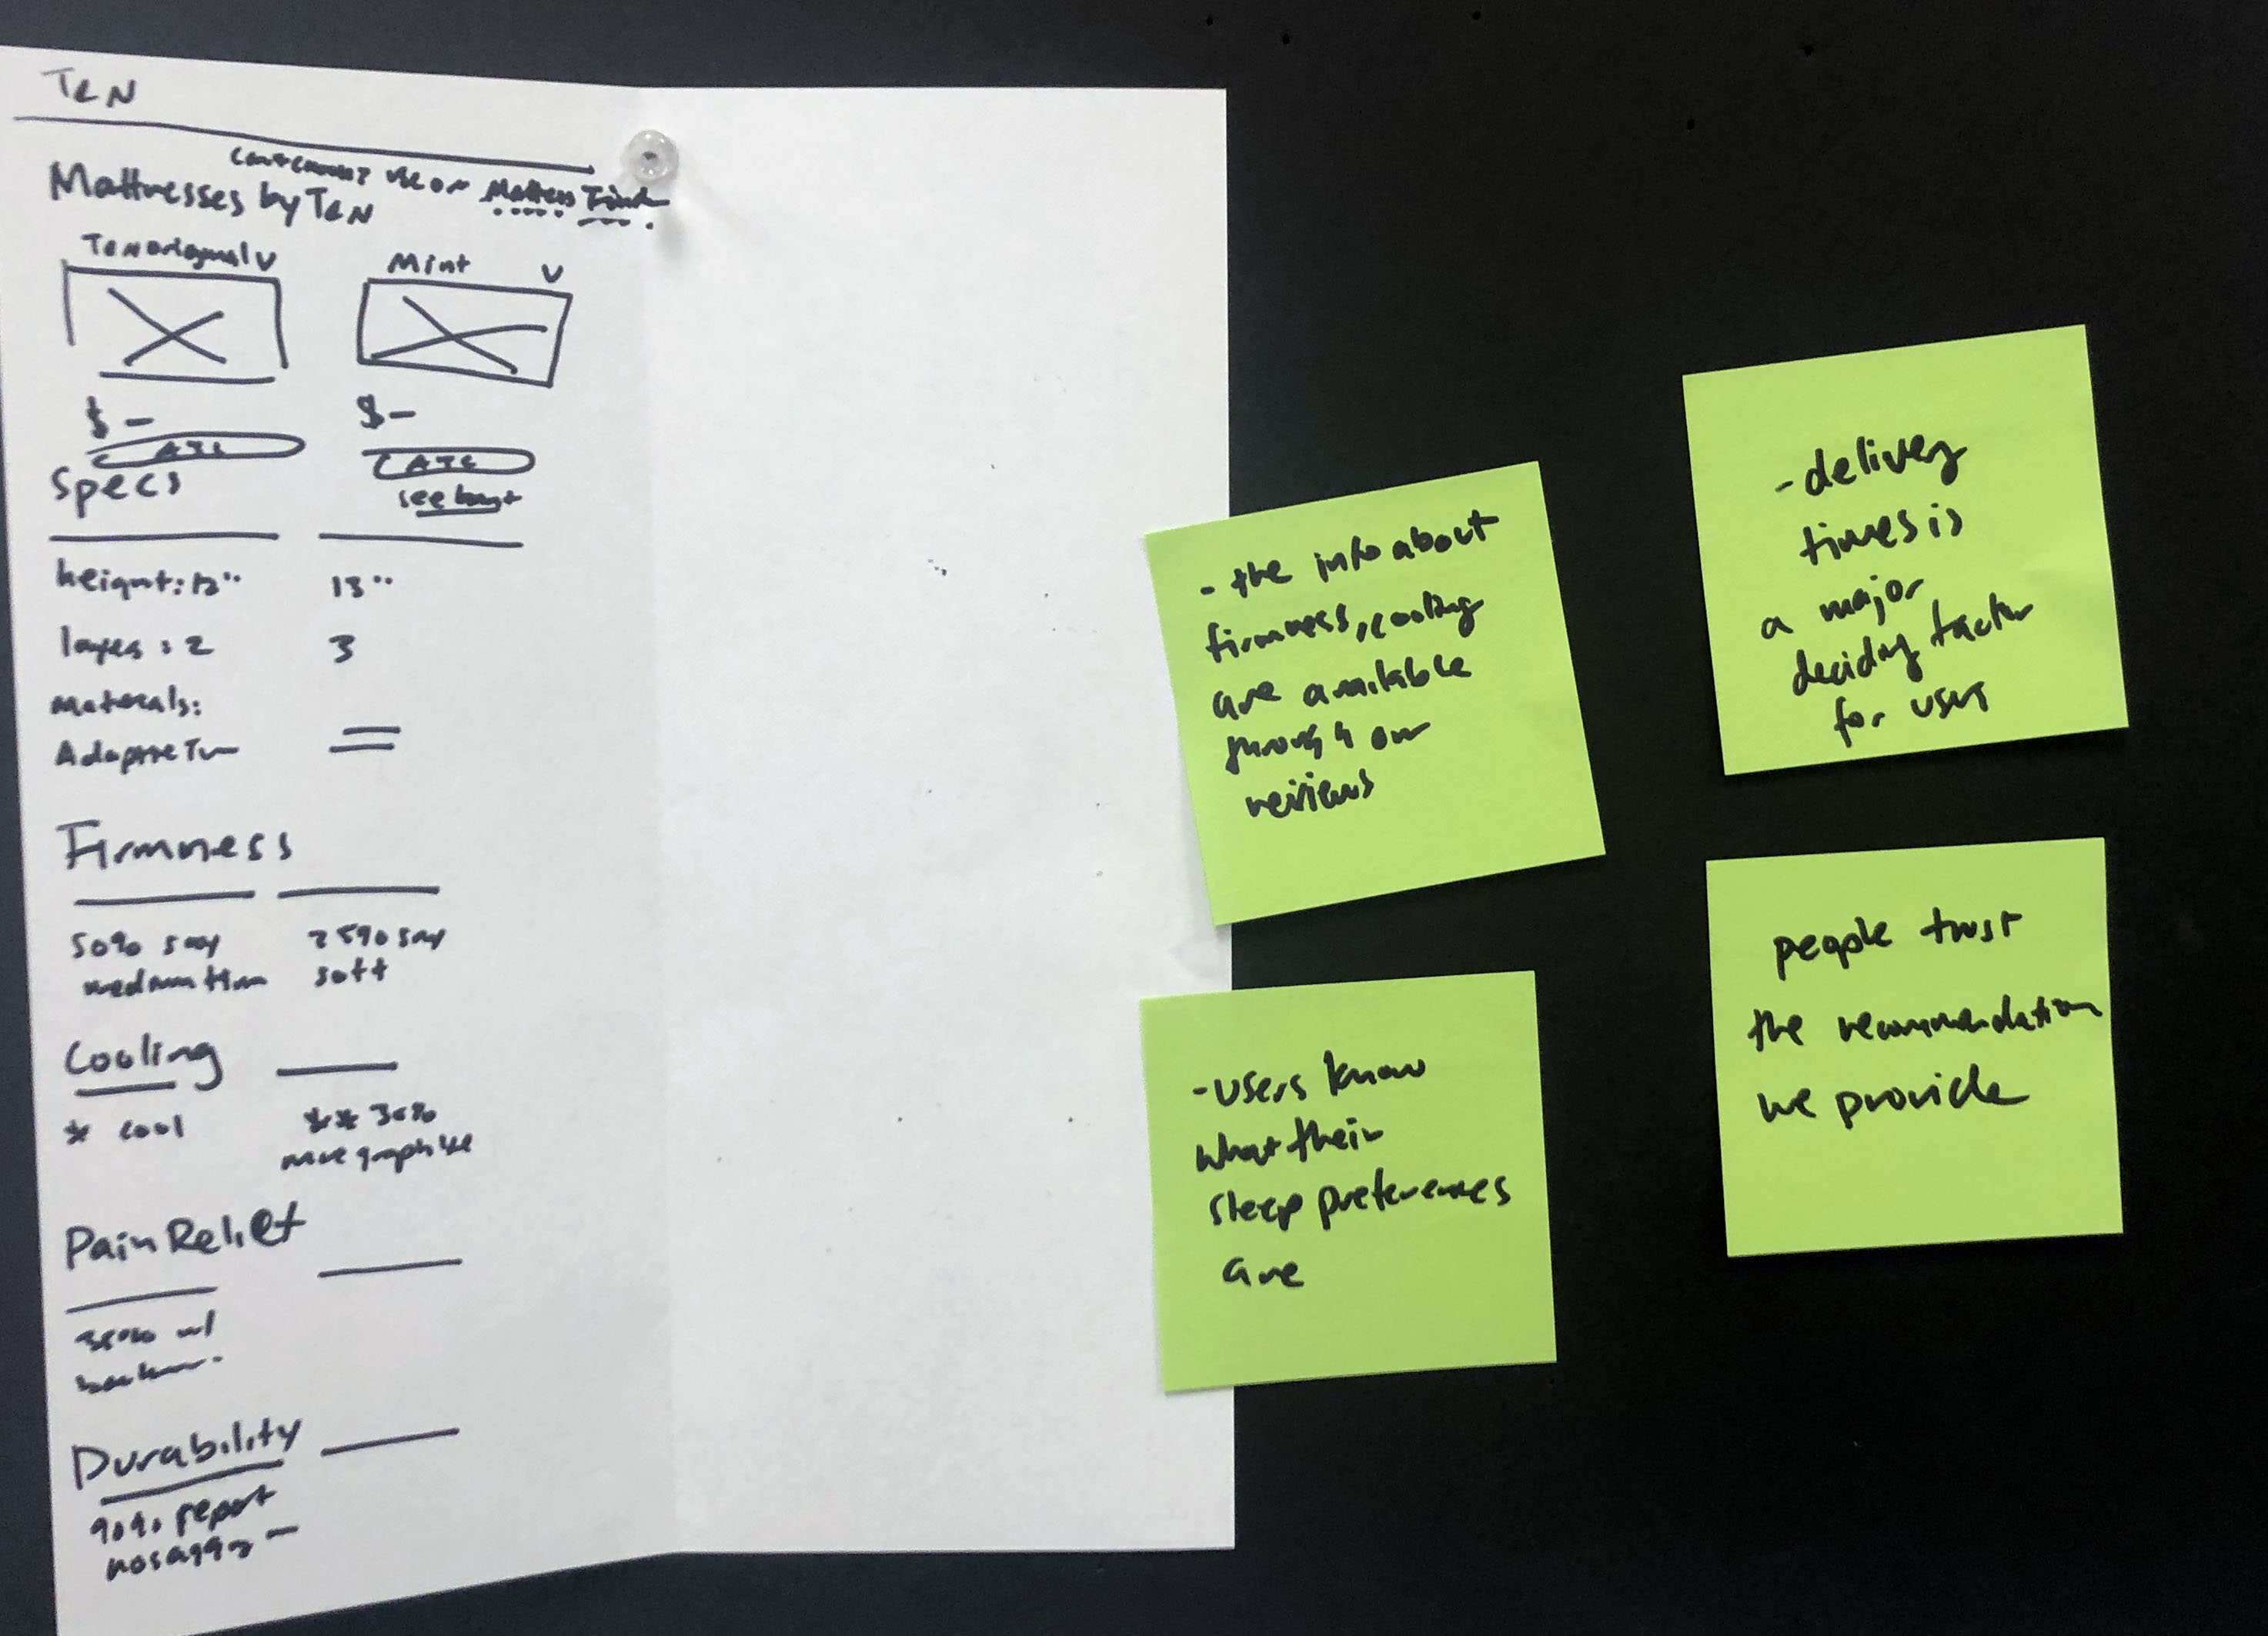 T&N
Mattresses by T&N
use or Mattress
T&N original v
Mint v
$ -
$ -
ATC
ATC
Specs
see
height: 12"
13"
layers: 2
3
Materials:
Firmness
50% say
medium firm
25% say
soft
Cooling
* cool
** 30%
more graph like
Pain Relief
Durability
90% report
no
- the info about
firmness, cooling
are available
through our
reviews
- delivery
times is
a major
deciding factor
for users
- users know
what their
sleep preferences
are
people trust
the recommendation
we provide